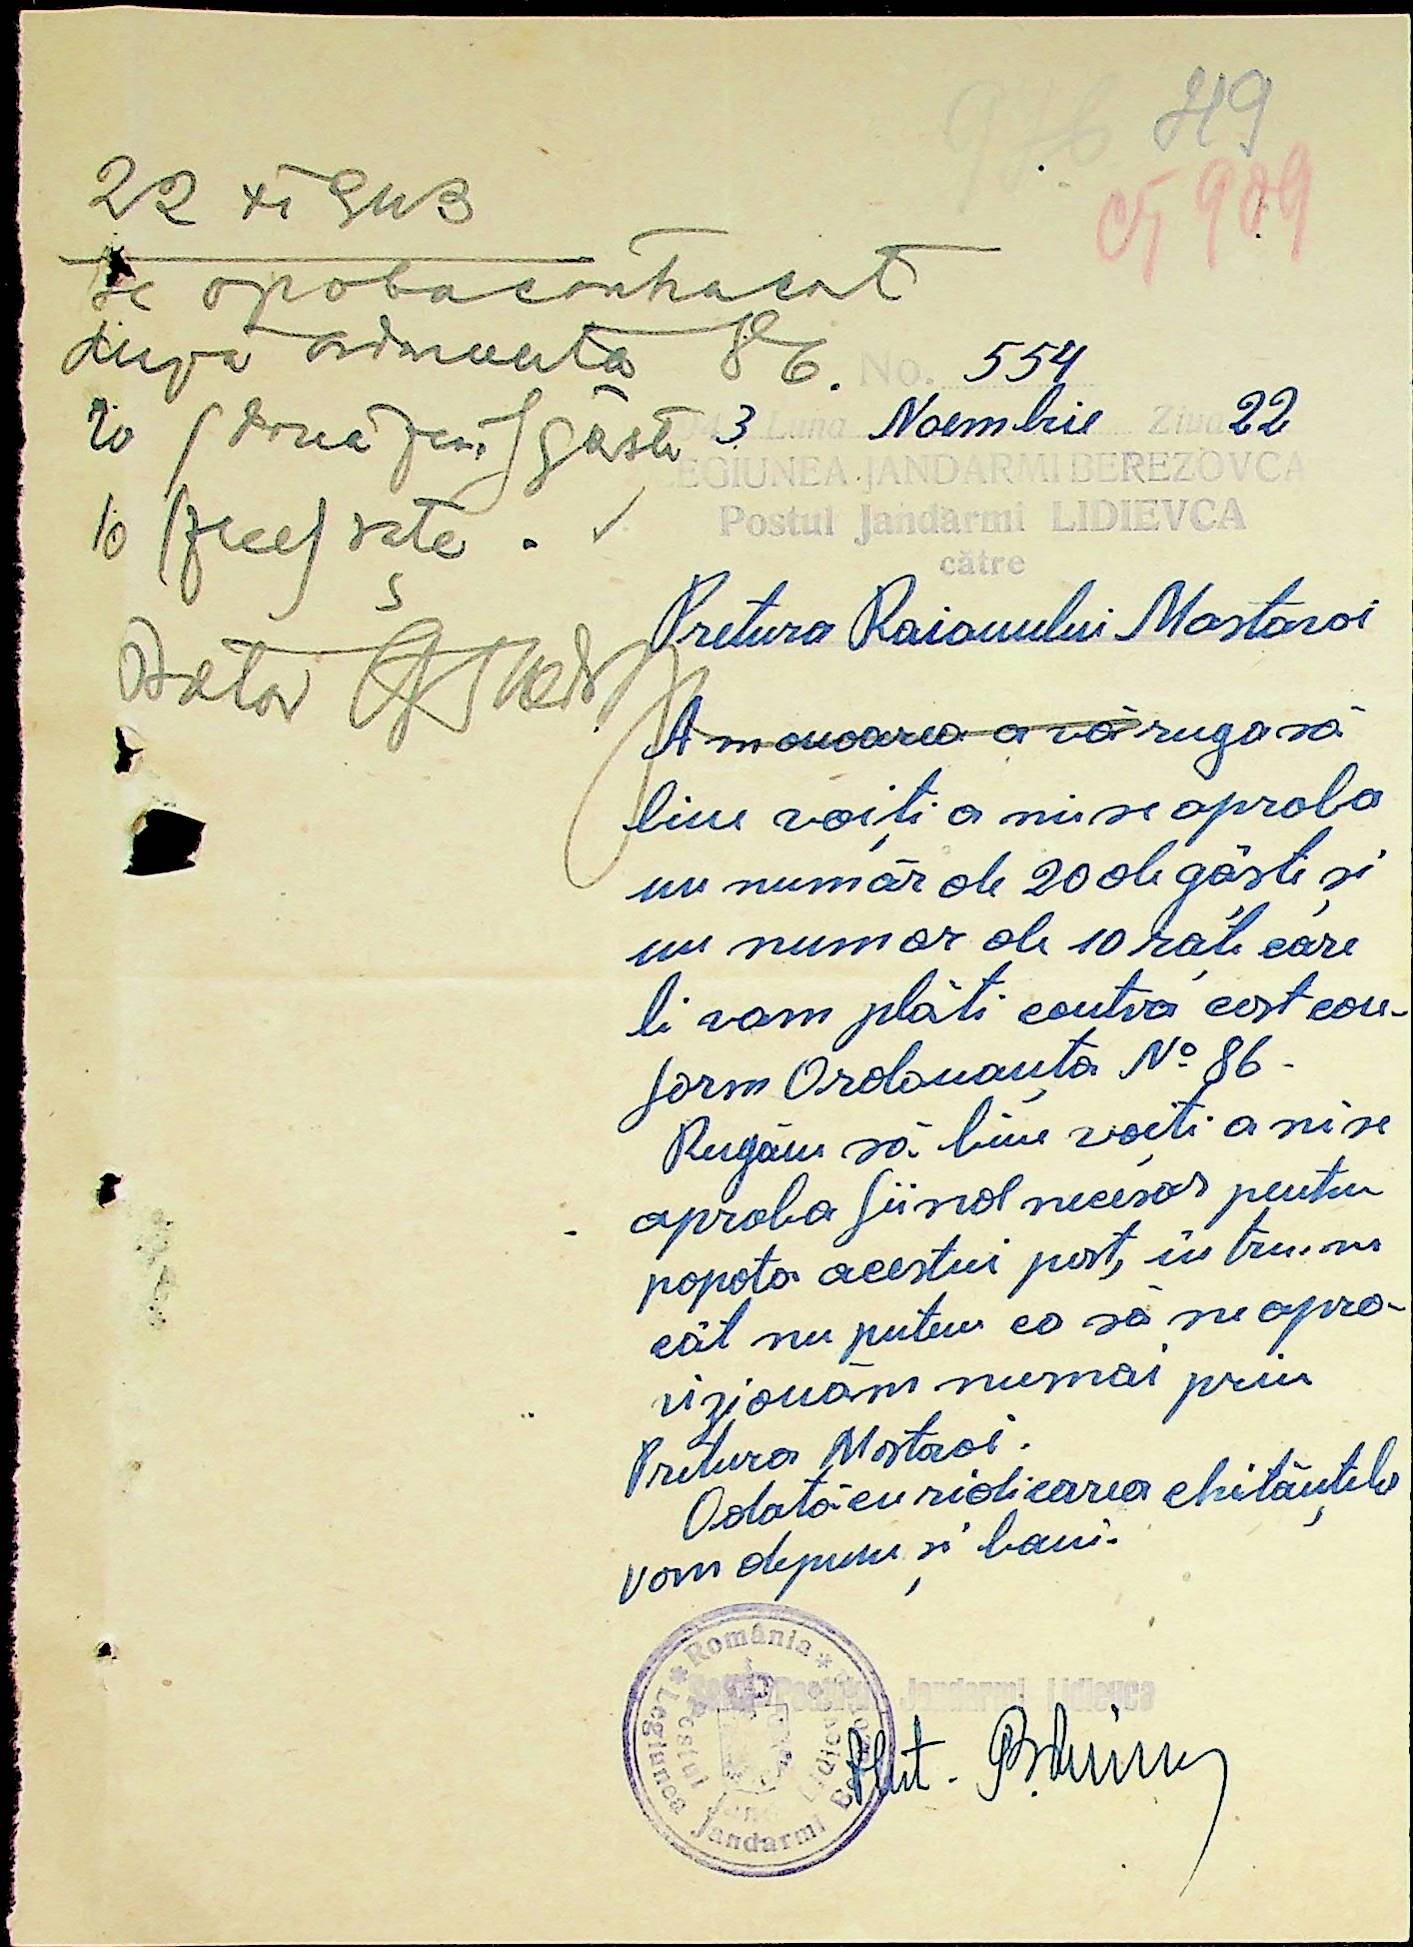 976 719
22 XI 943
Se aproba contracost
după ordonanta 86.
20 (două zeci) gâste
10 (zece) rațe.
No. 554
194 3 Luna Noembrie Ziua 22
LEGIUNEA JANDARMI BEREZOVCA
Postul Jandarmi LIDIEVCA
către
Pretura Raionului Mostovoi
Am onoarea a vă ruga să
bine voiți a ni se aproba
un număr de 20 de gâște și
un numar de 10 rațe care
le vom plăti contra cost con-
form Ordonanța No 86-
Rugăm să bine voiți a ni se
aproba fiind necesar pentru
popota acestui post, în trucât
cât nu putem ca să ne apro-
vizionăm numai prin
Pretura Mostovoi.
Odată cu ridicarea chitănțelor
vom depune și bani.
Postului Jandarmi Lidievca
Plut.
* România * Legiunea Jandarmi
Postul Jand. Lidievca